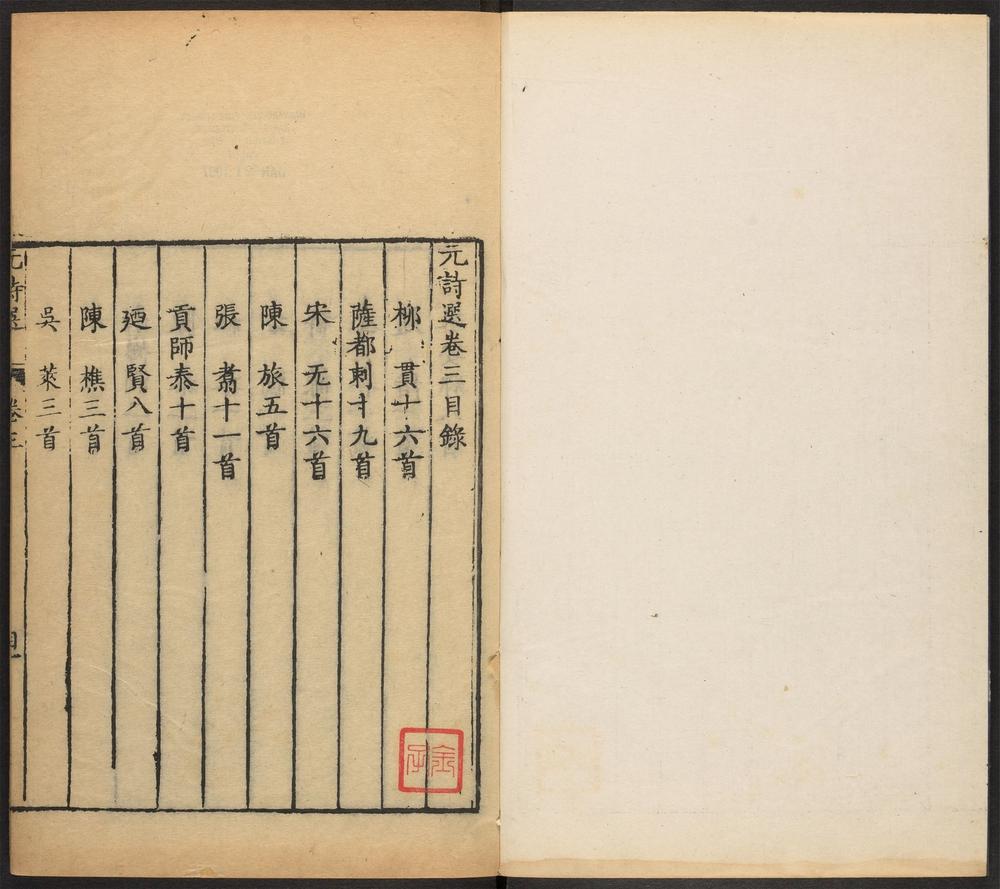 元詩選卷三目錄
柳 貫十六首
薩都剌十九首
宋 无十六首
陳 旅五首
張 翥十一首
貢師泰十首
迺賢八首
陳 樵三首
吳 萊三首
元詩選 卷三